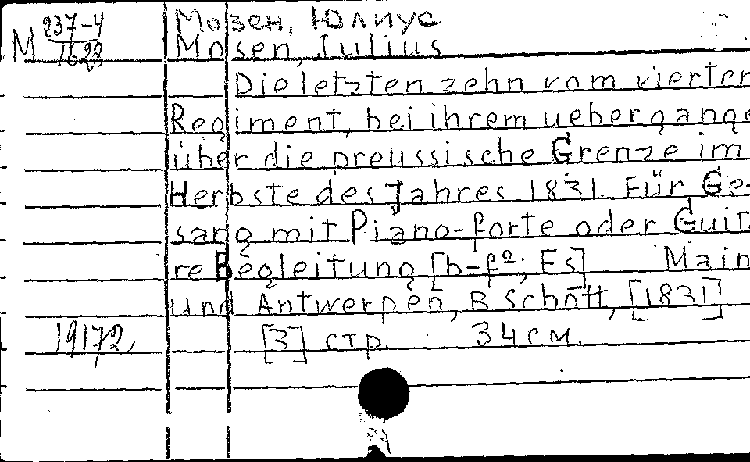 М 237-4 Мозен, Юлиус
1623 Mosen, Julius
Die letzten zehn vom vierten
Regiment, bei ihrem uebergange
über die preussische Grenze im
Herbste des Jahres 1831. Für Ge-
sang mit Piano-forte oder Guita-
re Begleitung [b-f², Es] Mainz
und Antwerpen, B Schott, [1831]
19172 [3] стр. 34 см.